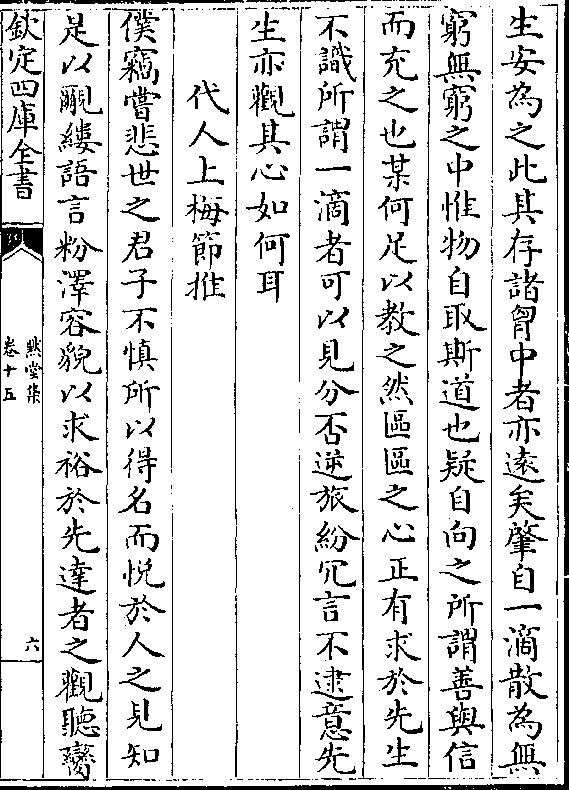 生安為之此其存諸胷中者亦遠矣肇自一滴散為無
窮無窮之中惟物自取斯道也疑自向之所謂善與信
而充之也某何足以教之然區區之心正有求於先生
不識所謂一滴者可以見分否逆旅紛冗言不逮意先
生亦觀其心如何耳
代人上梅節推
僕竊嘗悲世之君子不慎所以得名而悦於人之見知
是以覼縷語言粉澤容貌以求裕於先達者之觀聽臠
欽定四庫全書
卷十五
默堂集
六